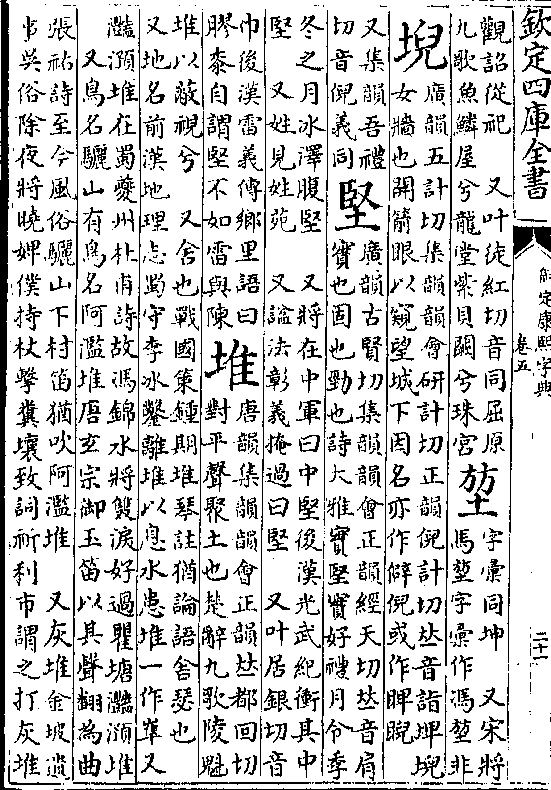 欽定四庫全書
御定康熙字典
卷五
二十一
觀詔從祀　又叶徒紅切音同屈原
九歌魚鱗屋兮龍堂紫貝闕兮珠宮
堃
字彙同坤　又宋將
馬堃字彙作馮堃非
堄
廣韻五計切集韻韻會研計切正韻倪計切𠀤音詣埤堄
女牆也開箭眼以窺望城下因名亦作僻倪或作睥睨
又集韻吾禮
切音倪義同
堅
廣韻古賢切集韻韻會正韻經天切𠀤音肩
實也固也勁也詩大雅實堅實好禮月令季
冬之月冰澤腹堅　又將在中軍曰中堅後漢光武紀衝其中
堅　又姓見姓苑　又諡法彰義掩過曰堅　又叶居銀切音
巾後漢雷義傳鄉里語曰
膠桼自謂堅不如雷與陳
堆
唐韻集韻韻會正韻𠀤都回切
對平聲聚土也楚辭九歌陵魁
堆以蔽視兮　又舍也戰國策鍾期堆琴註猶論語舍瑟也
又地名前漢地理志蜀守李冰鑿離堆以息水患堆一作又
灩澦堆在蜀夔州杜甫詩故馮錦水將雙淚好過瞿塘灩澦堆
又鳥名驪山有鳥名阿濫堆唐玄宗御玉笛以其聲翻為曲
張祐詩至今風俗驪山下村笛猶吹阿濫堆　又灰堆金坡遺
事吳俗除夜將曉婢僕持杖擊糞壤致詞祈利市謂之打灰堆